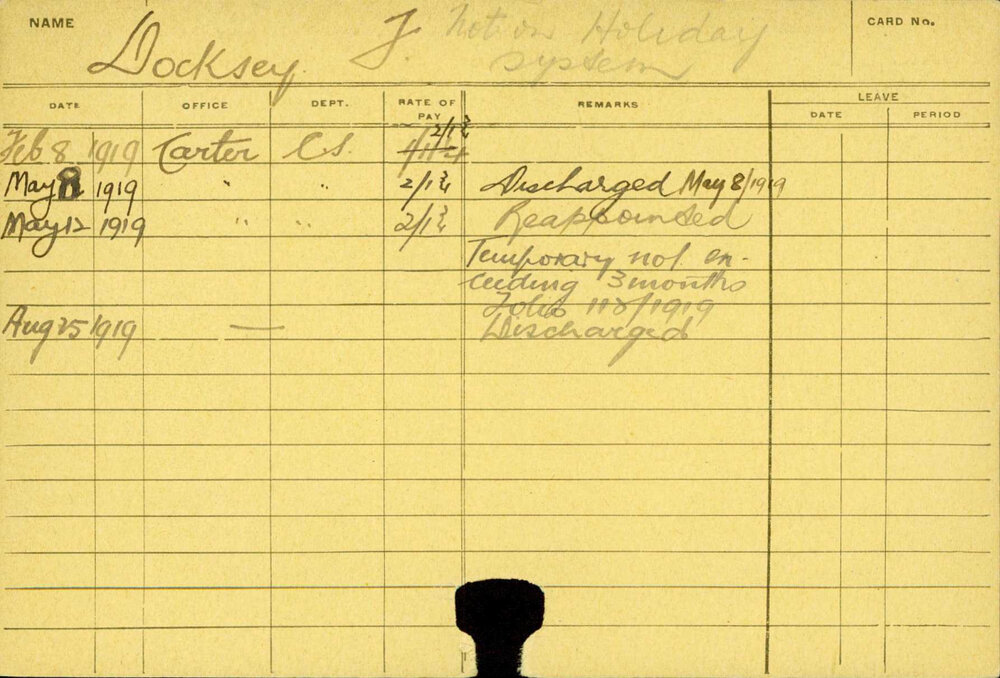 NAME Docksey J. Not on Holiday CARD No.
system
DATE OFFICE DEPT. RATE OF PAY REMARKS LEAVE
DATE PERIOD
2/1¾
Feb 8 1919 Carter C.S.
May 8 1919 " " 2/1¾ Discharged May 8/1919
May 12 1919 " " 2/1¾ Reappointed
Temporary not ex-
ceeding 3 months
/1919
Aug 25 1919 — Discharged